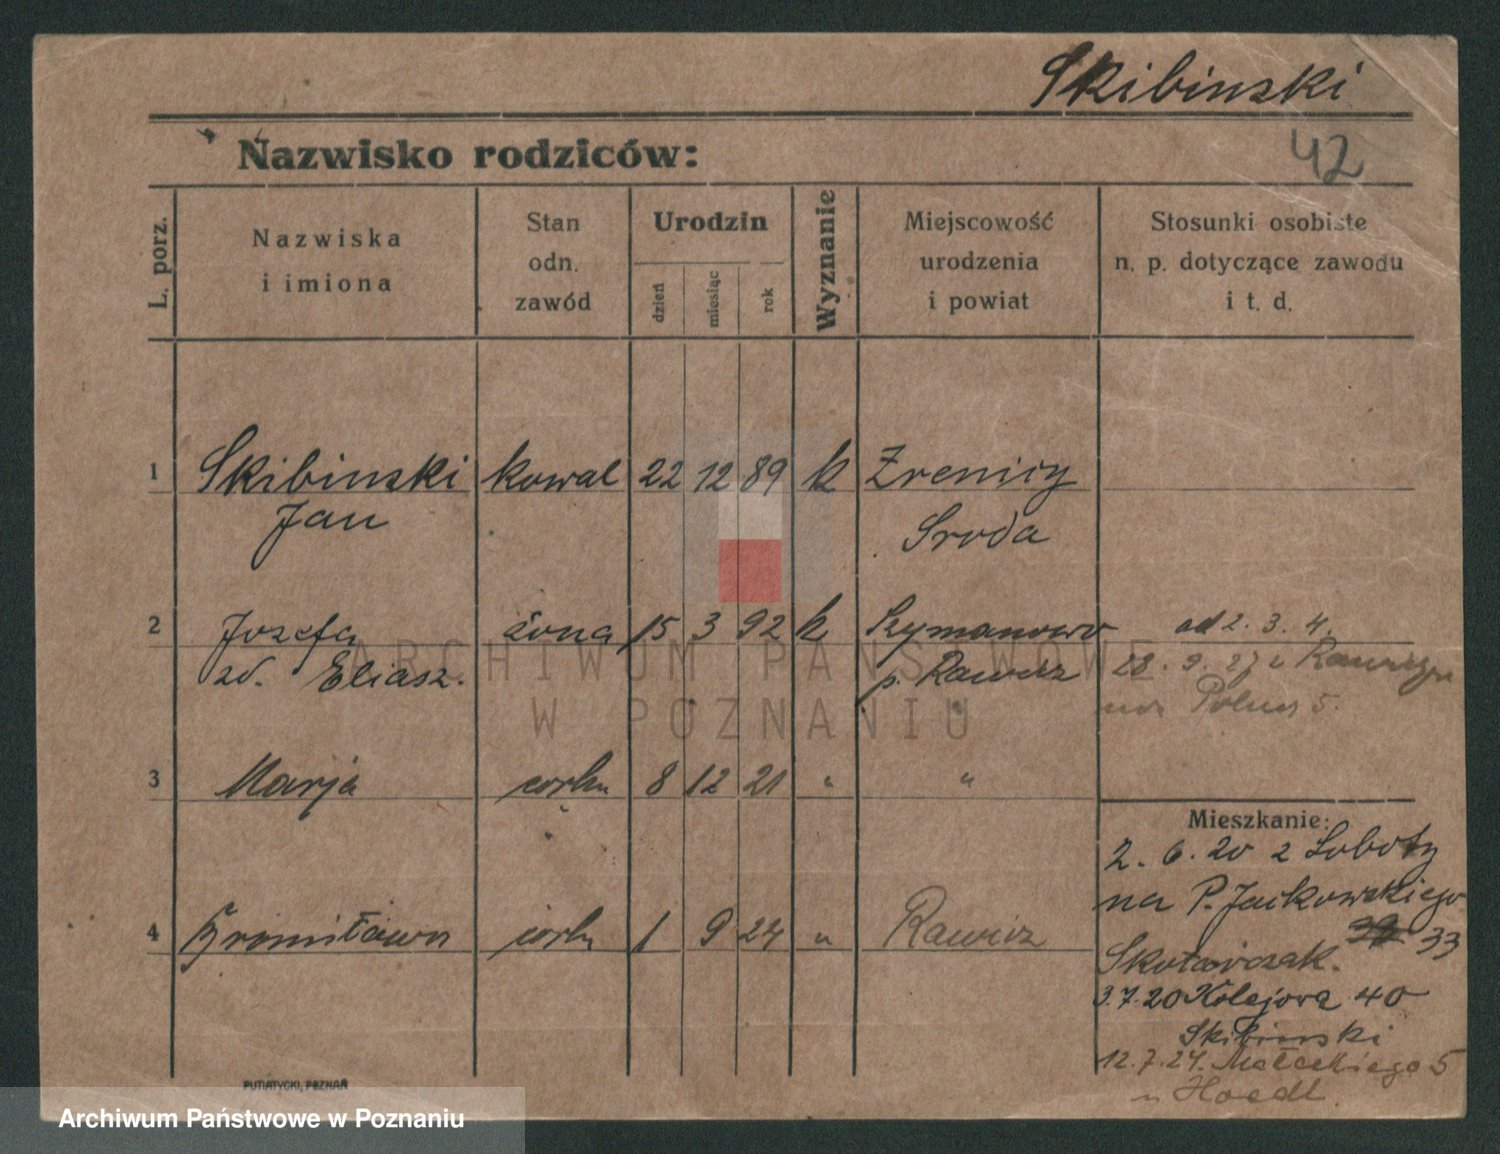 Skibinski
42
Nazwisko rodziców:
L. porz.
Nazwiska
i imiona
Stan
odn.
zawód
Urodzin
dzień
miesiąc
rok
Wyznanie
Miejscowość
urodzenia
i powiat
Stosunki osobiste
n. p. dotyczące zawodu
i t. d.
1 Skibinski kowal 22 12 89 k Zrenicy
Jan Sroda
2 Jozefa żona 15 3 92 k Szymanowo od 2. 3. 4.
zd. Eliasz. p. Rawicz 28. 9. 27 z
Polna 5.
3 Marja córka 8 12 21 " "
4 Bronisława córka 1 9 24 " Rawicz
Mieszkanie:
2. 6. 20 z Soboty
na P. Jackowskiego
33
Skotarczak.
3.7.20 Kolejowa 40
Skibinski
12.7.24. Małeckiego 5
u
PUTIATYCKI, POZNAŃ
ARCHIWUM PAŃSTWOWE
W POZNANIU
Archiwum Państwowe w Poznaniu